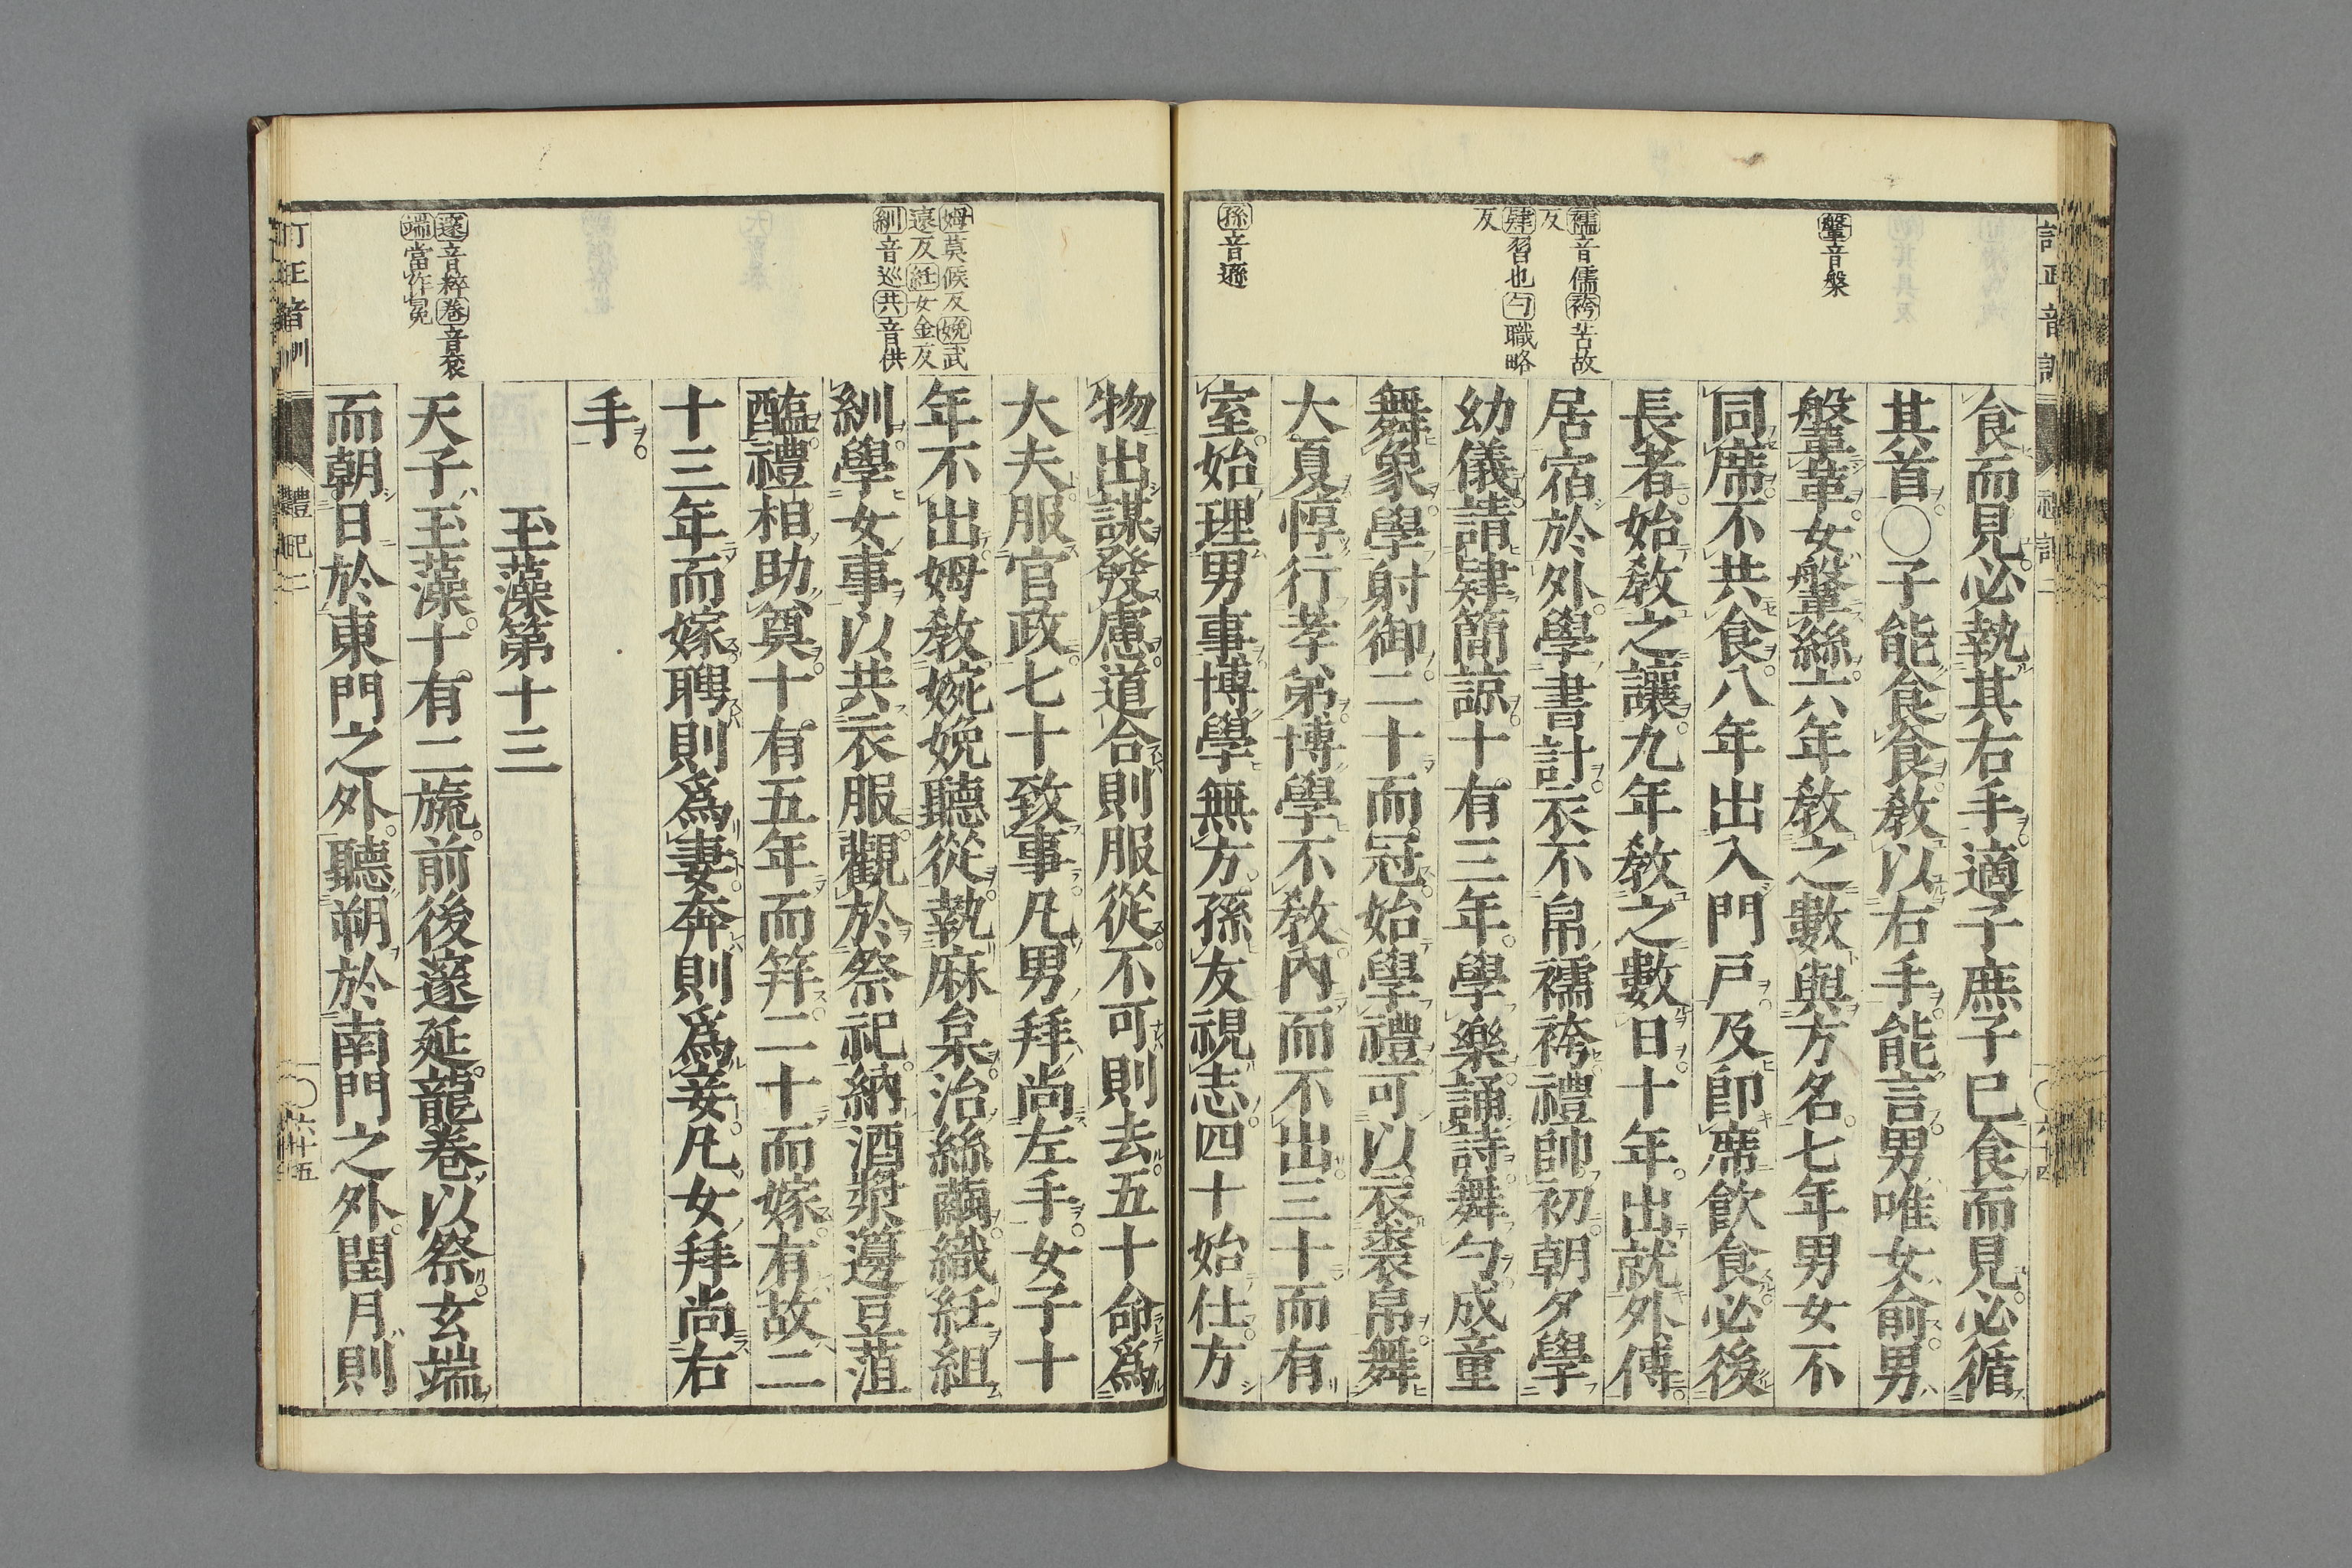 鞶音槃
襦音儒袴苦故
反
肄習也勺職略
反
孫音遜
食而見必執其右手適子庶子已食而見必循
其首〇子能食食敎以右手能言男唯女俞男
鞶革女鞶絲六年敎之數與方名七年男女不
同席不共食八年出入門戸及卽席飮食必後
長者始敎之讓九年敎之數日十年出就外傅
居宿於外學書計衣不帛襦袴禮帥初朝夕學
幼儀請肄簡諒十有三年學樂誦詩舞勺成童
舞象學射御二十而冠始學禮可以衣裘帛舞
大夏惇行孝弟博學不敎內而不出三十而有
室始理男事博學無方孫友視志四十始仕方
姆莫候反娩武
遠反紝女金反
紃音巡共音供
邃音粹卷音袞
端當作冕
物出謀發慮道合則服從不可則去五十命爲
大夫服官政七十致事凡男拜尚左手女子十
年不出姆敎婉娩聽從執麻枲治絲繭織紝組
紃學女事以共衣服觀於祭祀納酒漿籩豆菹
醢禮相助奠十有五年而筓二十而嫁有故二
十三年而嫁聘則爲妻奔則爲妾凡女拜尚右
手
玉藻第十三
天子玉藻十有二旒前後邃延龍卷以祭玄端
而朝日於東門之外聽朔於南門之外閏月則
禮記二
六十五